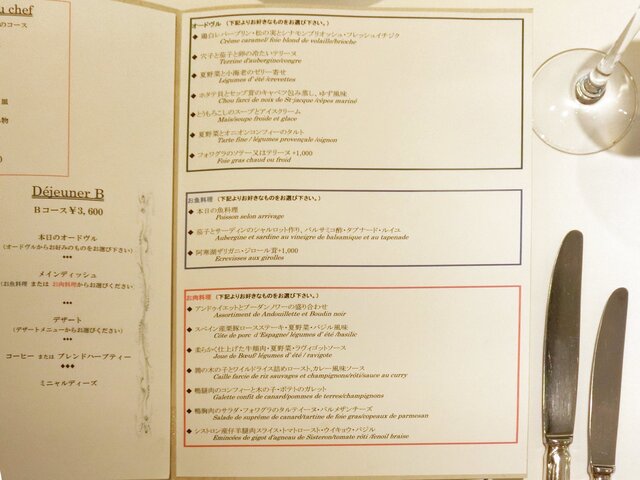 u chef
のコース
風
物
Déjeuner B
Bコース¥3,600
本日のオードヴル
(オードヴルからお好みのものをお選び下さい)
***
メインディッシュ
(お魚料理 または お肉料理からお選びください
***
デザート
(デザートメニューからお選びください)
***
コーヒー または ブレンドハーブティー
◆◆◆
ミニャルディーズ
オードヴル (下記よりお好きなものをお選び下さい。)
◆ 鶏白レバープリン・松の実とシナモンブリオッシュ・フレッシュイチジク
Crème caramel/ foie blond de volaille/brioche
◆ 穴子と茄子と卵の冷たいテリーヌ
Terrine d'aubergine/congre
◆ 夏野菜と小海老のゼリー寄せ
Légumes d' été /crevettes
◆ ホタテ貝とセップ茸のキャベツ包み蒸し、ゆず風味
Chou farci de noix de St jacque /cèpes mariné
◆とうもろこしのスープとアイスクリーム
Maïs/soupe froide et glace
◆ 夏野菜とオニオンコンフィーのタルト
Tarte fine / légumes provençale /oignon
◆ フォワグラのソテー又はテリーヌ +1,000
Foie gras chaud ou froid
お魚料理 (下記よりお好きなものをお選び下さい。)
◆ 本日の魚料理
Poisson selon arrivage
◆ 茄子とサーディンのシャルロット作り、バルサミコ酢・タプナード・ルイユ
Aubergine et sardine au vinaigre de balsamique et au tapenade
◆ 阿寒湖ザリガニ・ジロール茸+1,000
Ecrevisses aux girolles
お肉料理 (下記よりお好きなものをお選び下さい。)
◆ アンドゥイエットとブーダンノワーの盛り合わせ
Assortiment de Andouillette et Boudin noir
◆ スペイン産栗豚ロースステーキ・夏野菜・バジル風味
Côte de porc d'Espagne/ légumes d' été /basilic
◆ 柔らかく仕上げた牛頬肉・夏野菜・ラヴィゴットソース
Joue de Bœuf/ légumes d' été / ravigote
◆ 鶉の木の子とワイルドライス詰めロースト,カレー風味ソース
Caille farcie de riz sauvages et champignons/rôti/sauce au curry
◆ 鴨腿肉のコンフィーと木の子・ポテトのガレット
Galette confit de canard/pommes de terres/champignons
◆ 鴨胸肉のサラダ・フォワグラのタルティーヌ・パルメザンチーズ
Salade de suprême de canard/tartine de foie gras/copeaux de parmesan
◆ シストロン産仔羊腿肉スライス・トマトロースト・ウイキョウ・バジル
Emincées de gigot d'agneau de Sisteron/tomate rôti /fenoïl braise